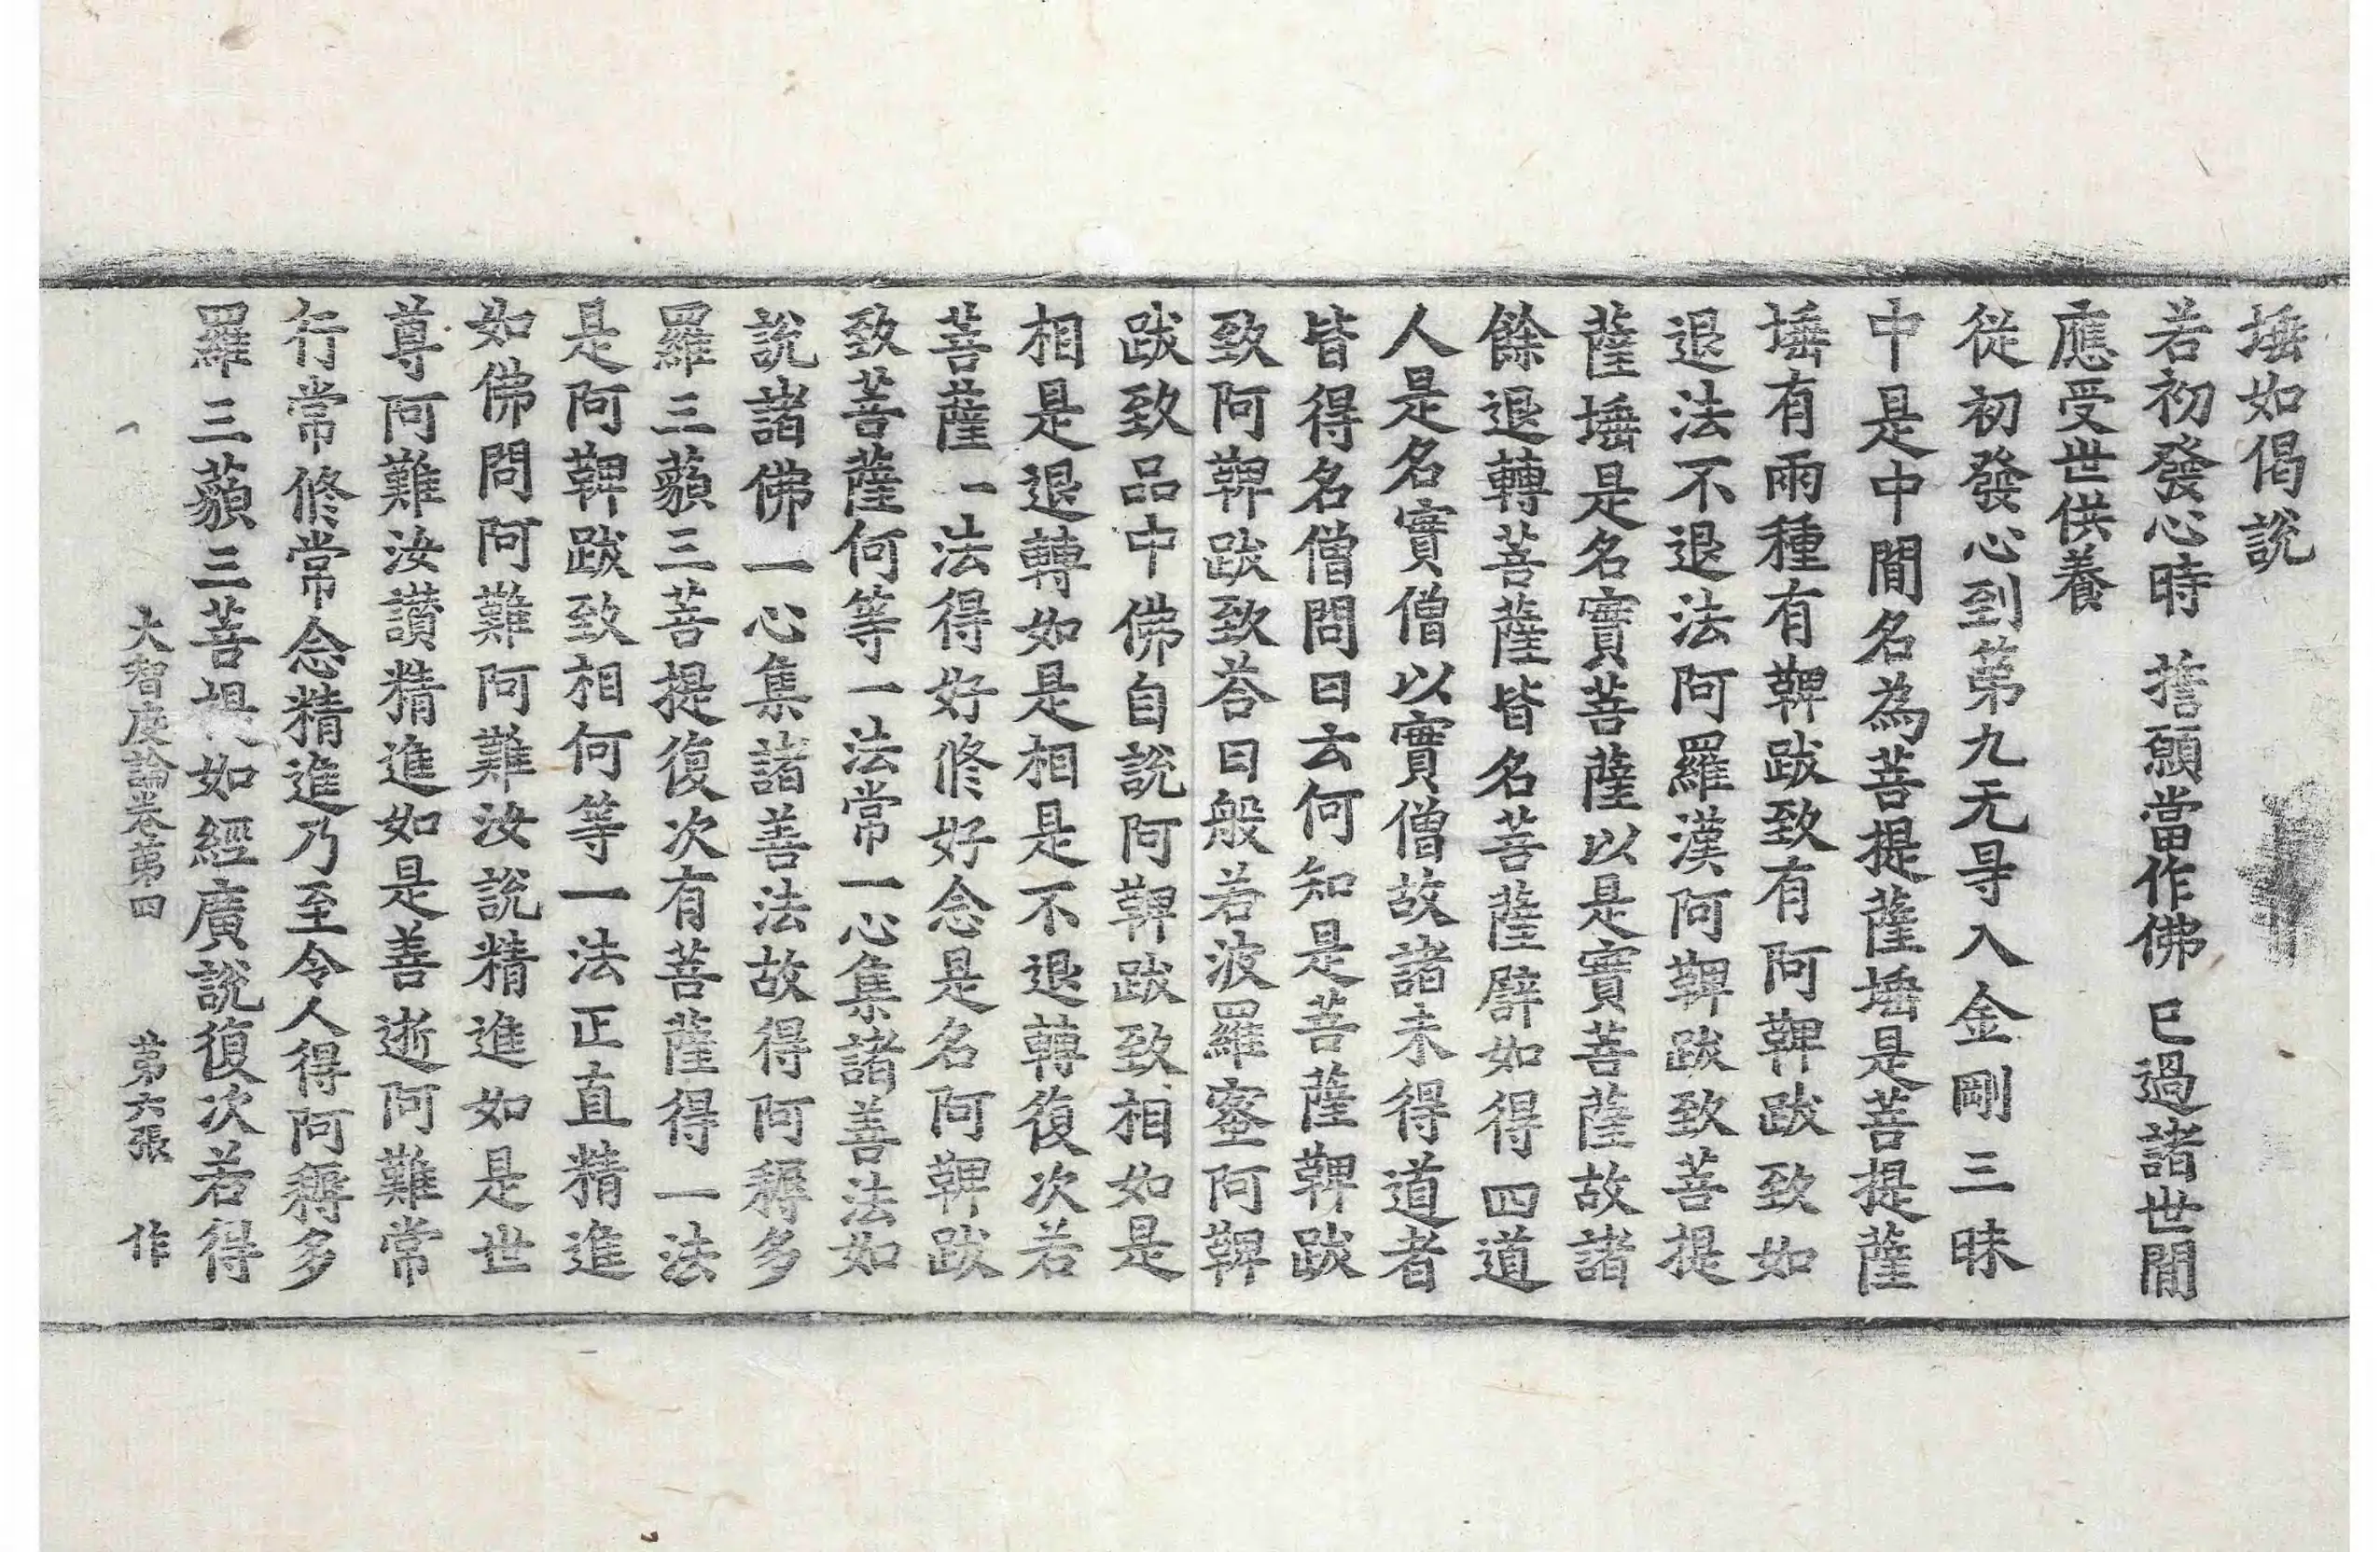 埵如偈說
若初發心時　擔願當作佛　已過諸世間
應受世供養
從初發心到第九无㝵入金剛三昧
中是中間名為菩提薩埵是菩提薩
埵有兩種有鞞跋致有阿鞞跋致如
退法不退法阿羅漢阿鞞跋致菩提
薩埵是名實菩薩以是實菩薩故諸
餘退轉菩薩皆名菩薩譬如得四道
人是名實僧以實僧故諸未得道者
皆得名僧問曰云何知是菩薩鞞跋
致阿鞞跋致荅曰般若波羅蜜阿鞞
跋致品中佛自說阿鞞跋致相如是
相是退轉如是相是不退轉復次若
菩薩一法得好修好念是名阿鞞跋
致菩薩何等一法常一心集諸善法如
說諸佛一心集諸善法故得阿耨多
羅三藐三菩提復次有菩薩得一法
是阿鞞跋致相何等一法正直精進
如佛問阿難阿難汝說精進如是世
尊阿難汝讚精進如是善逝阿難常
行常修常念精進乃至令人得阿耨多
羅三藐三菩提如經廣說復次若得
大智度論卷第四　第六張　作